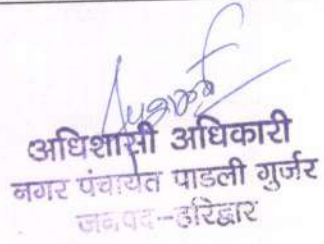 अधिशासी अधिकारी
नगर पंचायत पाडली गुर्जर
जनपद--हरिद्वार